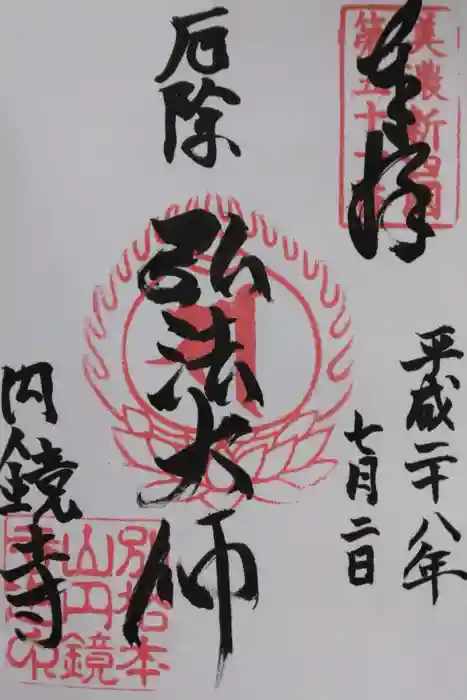 奉拝
美濃新四国
平成二十八年
七月二日
厄除
弘法大師
円鏡寺
別格本
山円鏡
寺